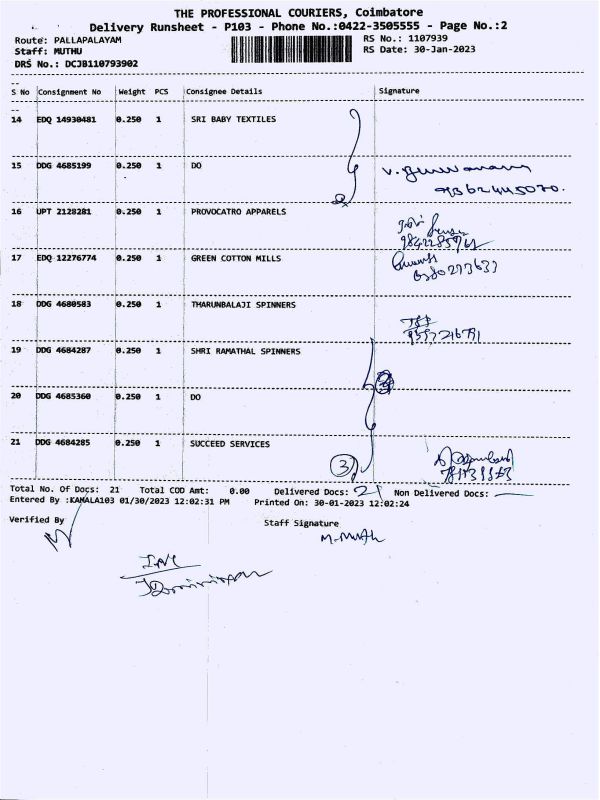 THE PROFESSIONAL COURIERS, Coimbatore
Delivery Runsheet - P103 - Phone No.:0422-3505555 - Page No.:2
Route: PALLAPALAYAM RS No.: 1107939
Staff: MUTHU RS Date: 30-Jan-2023
DRS No.: DCJB110793902
S No Consignment No Weight PCS Consignee Details Signature
14 EDQ 14930481 0.250 1 SRI BABY TEXTILES
15 DDG 4685199 0.250 1 DO
16 UPT 2128281 0.250 1 PROVOCATRO APPARELS
17 EDQ 12276774 0.250 1 GREEN COTTON MILLS
18 DDG 4680583 0.250 1 THARUNBALAJI SPINNERS
19 DDG 4684287 0.250 1 SHRI RAMATHAL SPINNERS
20 DDG 4685360 0.250 1 DO
21 DDG 4684285 0.250 1 SUCCEED SERVICES
3
Total No. Of Docs: 21 Total COD Amt: 0.00 Delivered Docs: 21 Non Delivered Docs: —
Entered By :KAMALA103 01/30/2023 12:02:31 PM Printed On: 30-01-2023 12:02:24
Verified By Staff Signature
M. Muth